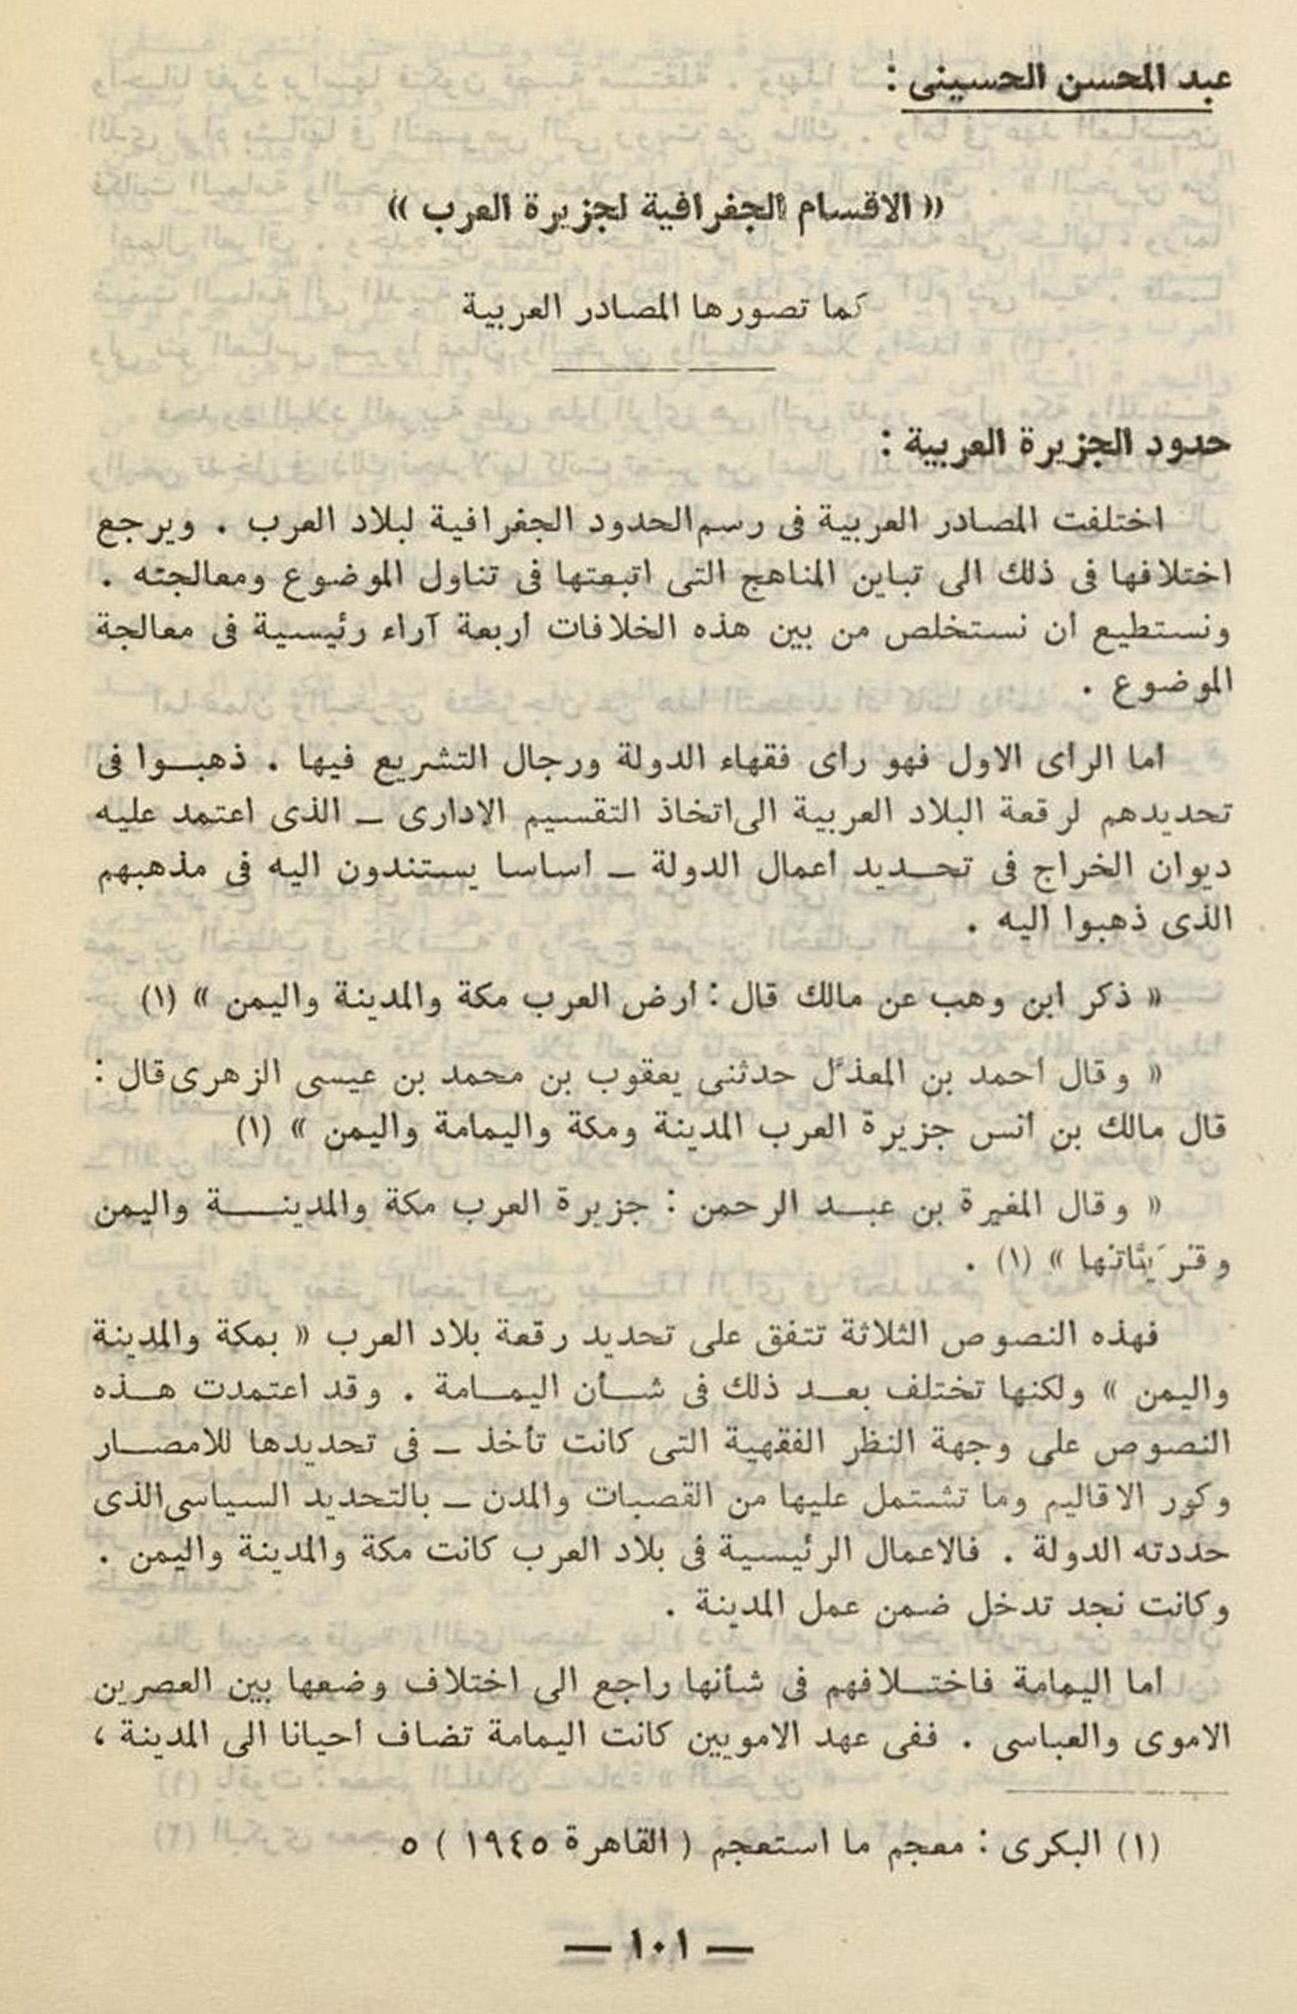 عبد المحسن الحسينى :
« الاقسام الجغرافية لجزيرة العرب »
كما تصورها المصادر العربية
حدود الجزيرة العربية :
اختلفت المصادر العربية فى رسم الحدود الجغرافية لبلاد العرب . ويرجع
اختلافها فى ذلك الى تباين المناهج التى اتبعتها فى تناول الموضوع ومعالجته .
ونستطيع أن نستخلص من بين هذه الخلافات أربعة آراء رئيسية فى معالجة
الموضوع .
أما الرأى الاول فهو رأى فقهاء الدولة ورجال التشريع فيها . ذهبوا فى
تحديدهم لرقعة البلاد العربية الى اتخاذ التقسيم الادارى ـ الذى اعتمد عليه
ديوان الخراج فى تحديد أعمال الدولة ـ أساسا يستندون اليه فى مذهبهم
الذى ذهبوا اليه .
« ذكر ابن وهب عن مالك قال : أرض العرب مكة والمدينة واليمن » (١)
« وقال أحمد بن المعذَّل حدثنى يعقوب بن محمد بن عيسى الزهرى قال :
قال مالك بن أنس جزيرة العرب المدينة ومكة واليمامة واليمن » (١)
« وقال المغيرة بن عبد الرحمن : جزيرة العرب مكة والمدينة واليمن
وقرَيَّاتها » (١) .
فهذه النصوص الثلاثة تتفق على تحديد رقعة بلاد العرب « بمكة والمدينة
واليمن » ولكنها تختلف بعد ذلك فى شأن اليمامة . وقد اعتمدت هذه
النصوص على وجهة النظر الفقهية التى كانت تأخذ ـ فى تحديدها للامصار
وكور الاقاليم وما تشتمل عليها من القصبات والمدن ـ بالتحديد السياسى الذى
حددته الدولة . فالاعمال الرئيسية فى بلاد العرب كانت مكة والمدينة واليمن .
وكانت نجد تدخل ضمن عمل المدينة .
أما اليمامة فاختلافهم فى شأنها راجع الى اختلاف وضعها بين العصرين
الاموى والعباسى . ففى عهد الامويين كانت اليمامة تضاف أحيانا الى المدينة ،
(١) البكرى : معجم ما استعجم ( القاهرة ١٩٤٥ ) ٥
— ١٠١ —